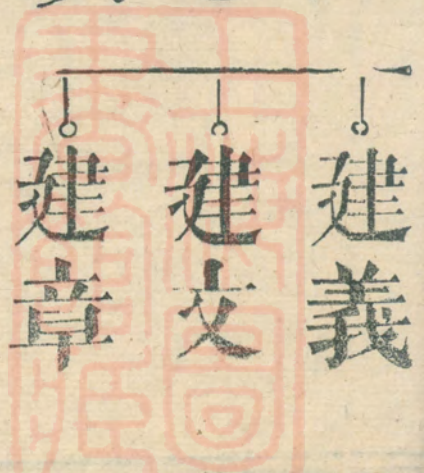 建義
建文
建章